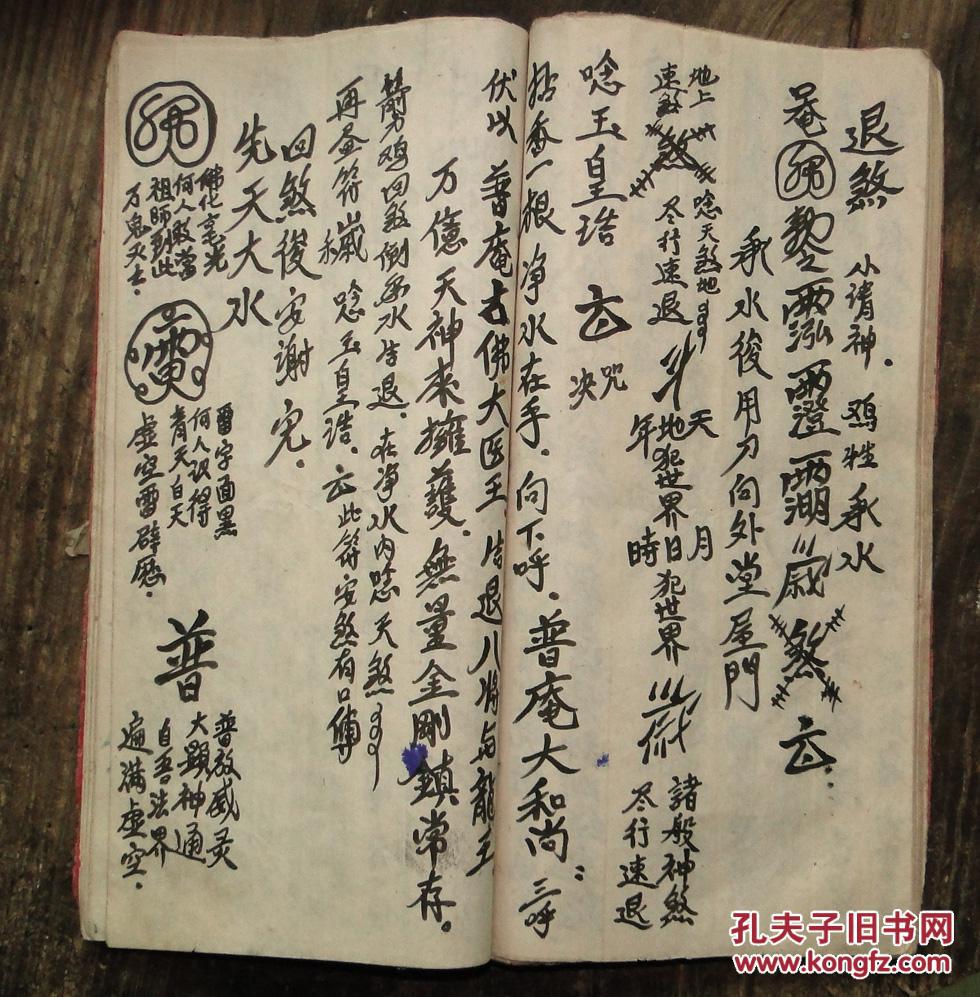 退煞 小请神. 鸡牲 承水
奄 勅令 煞 云:
承水後用刀向外堂屋門
地上
速煞 煞 唸天煞地
尽行速退
天 月
地犯世界日犯世界
年 時
諸般神煞
尽行速退
唸玉皇诰 云 咒
决
拈香一根净水在手. 向下呼. 普庵大和尚: 三呼
伏以 普庵古佛大医王. 告退八将与龍王
万億天神来擁護. 無量金剛鎮常存。
剪刀鸡回煞倒承水告退. 在净水内唸天煞
再畫符 唸玉皇诰. 云此符安煞有口傳
回煞後安谢完.
先天大水
佛化毫光
何人敢當
祖師到此
万鬼灭亡.
雷字面黑
何人识得
青天白天
虚空雷辟歷.
普
普放威灵
大顯神通
自吾法界
遍满虚空.
孔夫子旧书网
www.kongfz.com